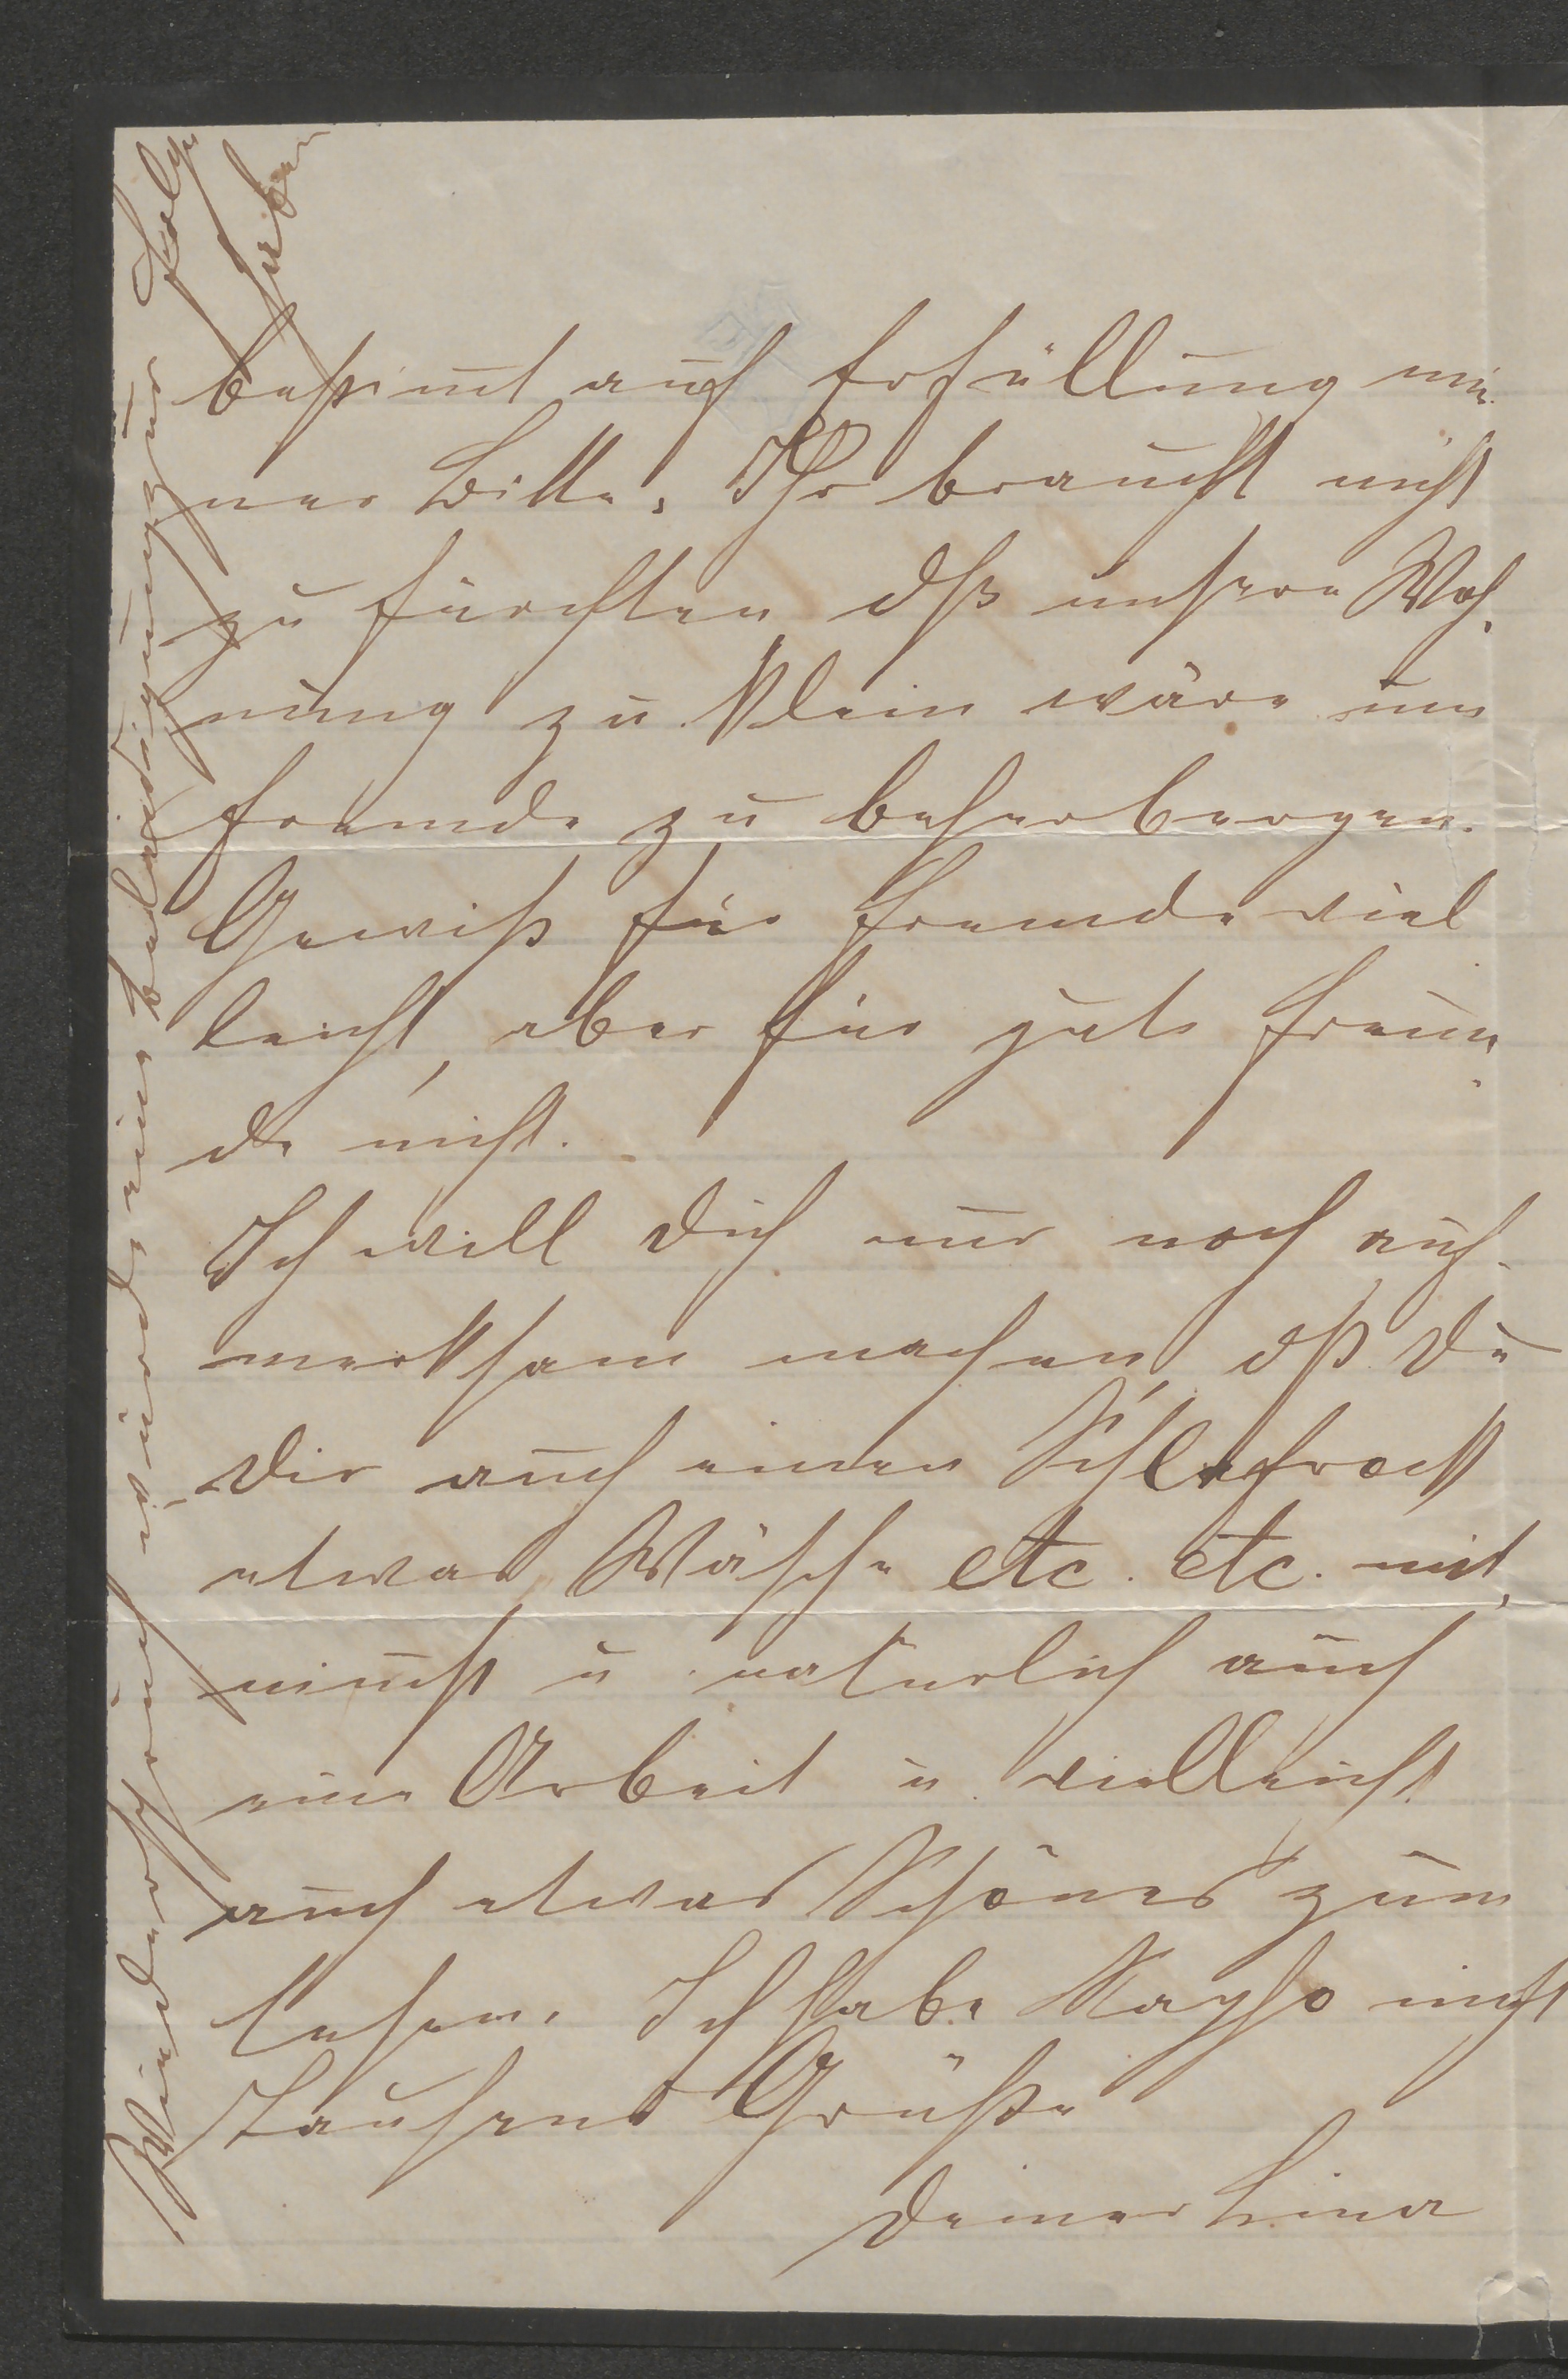 bestimmt auf Erfüllung mei-
ner Bitte. Ihr braucht nicht
zu fürchten dß unsere Woh-
nung zu klein wäre um
Fremde zu beherbergen.
Gewiß für Fremde viel
leicht, aber für gute Freun-
de nicht.
Ich will Dich nur noch auf-
merksam machen, dß Du
Dir auch einen Schlafrock
etwas Wäsche etc. etc. mit-
nimmst u natürlich auch
eine Arbeit u. vielleicht
auch etwas Schönes zum
lesen. Ich habe nicht
Tausend Grüße
Deiner Lina
Widerspruch würde eine Beleidigung zur Folge
haben